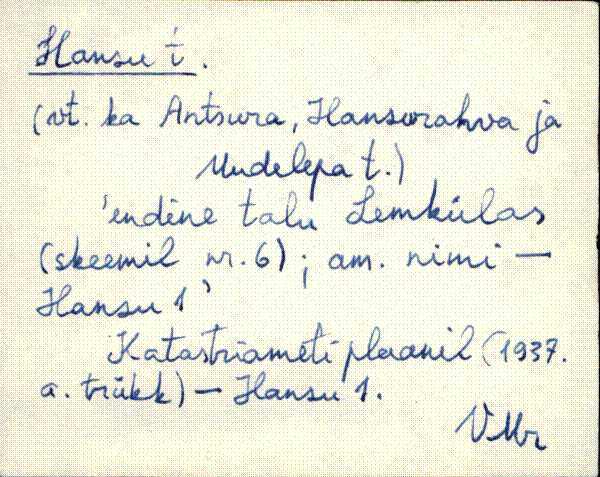 Hansu t.
(vt. ka Antsura, Hansurahva ja
Uudelepa t.)
'endine talu Lemkülas
(skeemil nr. 6); am. nimi —
Hansu 1'
Katastriameti plaanil (1937.
a. trükk) — Hansu 1.
VMr